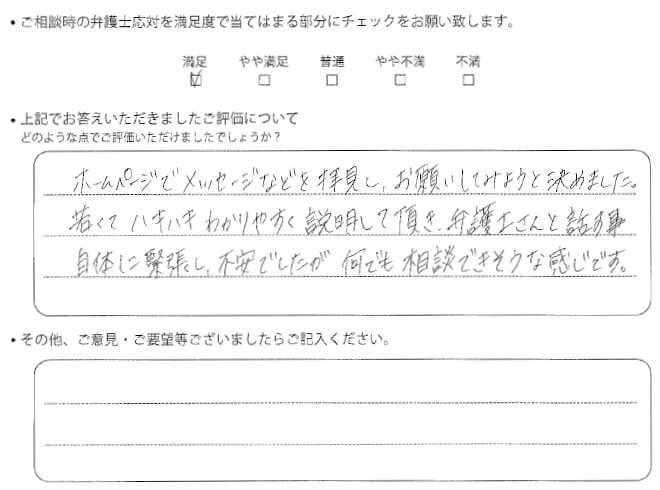 • ご相談時の弁護士応対を満足度で当てはまる部分にチェックをお願い致します。
満足 やや満足 普通 やや不満 不満
☑ ☐ ☐ ☐ ☐
• 上記でお答えいただきましたご評価について
どのような点でご評価いただけましたでしょうか？
ホームページでメッセージなどを拝見し、お願いしてみようと決めました。
若くてハキハキわかりやすく説明して頂き、弁護士さんと話す事
自体に緊張し、不安でしたが何でも相談できそうな感じです。
• その他、ご意見・ご要望等ございましたらご記入ください。